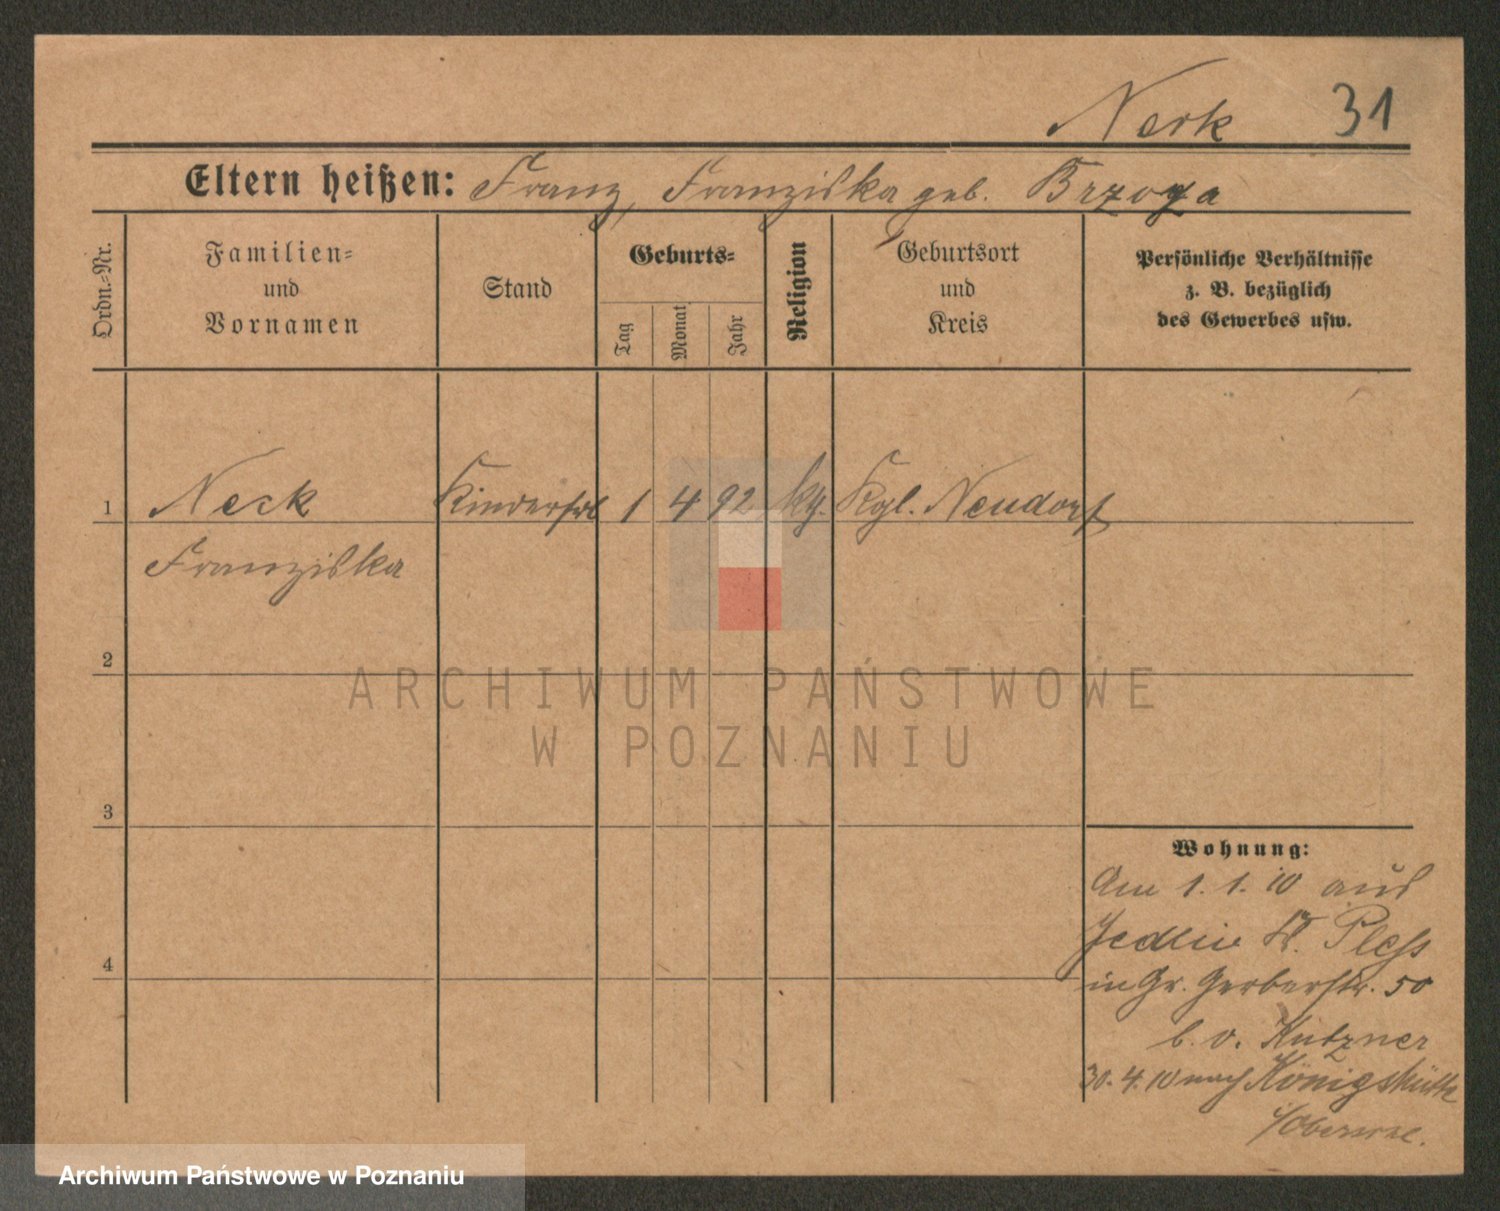 Neck 31
Eltern heißen: Franz, Franziska geb. Brzoza
Ordn.-Nr.
Familien-
und
Vornamen
Stand
Geburts-
Tag
Monat
Jahr
Religion
Geburtsort
und
Kreis
Persönliche Verhältnisse
z. B. bezüglich
des Gewerbes usw.
1 Neck Kinderfrl 1 4 92 kth. Kgl. Neudorf
Franziska
2
3
4
Wohnung:
Am 1. 1. 10 aus
Jedlin Kr. Pleß
in Gr. Gerberstr. 50
b. v. Kutzner
30. 4. 10 nach Königshütte
ARCHIWUM PAŃSTWOWE
W POZNANIU
Archiwum Państwowe w Poznaniu